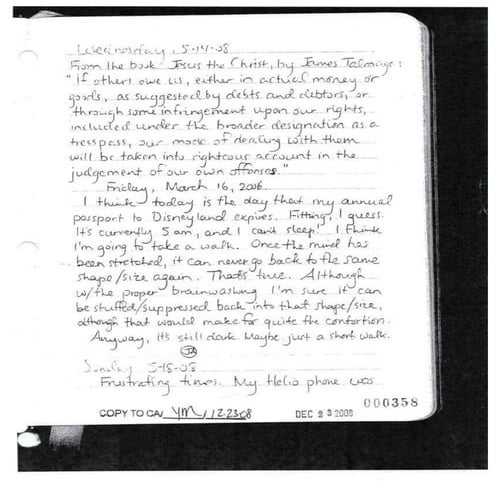 Wednesday 5-14-08
From the book Jesus the Christ, by James Talmage:
"If others owe us, either in actual money or
goods, as suggested by debts and debtors, or
through some infringement upon our rights,
included under the broader designation as a
tresspass, our mode of dealing with them
will be taken into righteous account in the
judgement of our own offenses."
Friday, March 16, 2008
I think today is the day that my annual
passport to Disneyland expires. Fitting, I guess.
It's currently 5 am, and I can't sleep! I think
I'm going to take a walk. Once the mind has
been stretched, it can never go back to the same
shape/size again. That's true. Although
w/the proper brainwashing I'm sure it can
be stuffed/suppressed back into that shape/size,
although that would make for quite the contortion.
Anyway, it's still dark. Maybe just a short walk.
Sunday 5-18-08
Frustrating times. My Helio phone was
000358
COPY TO CA/ YM, 12-23-08 DEC 23 2008